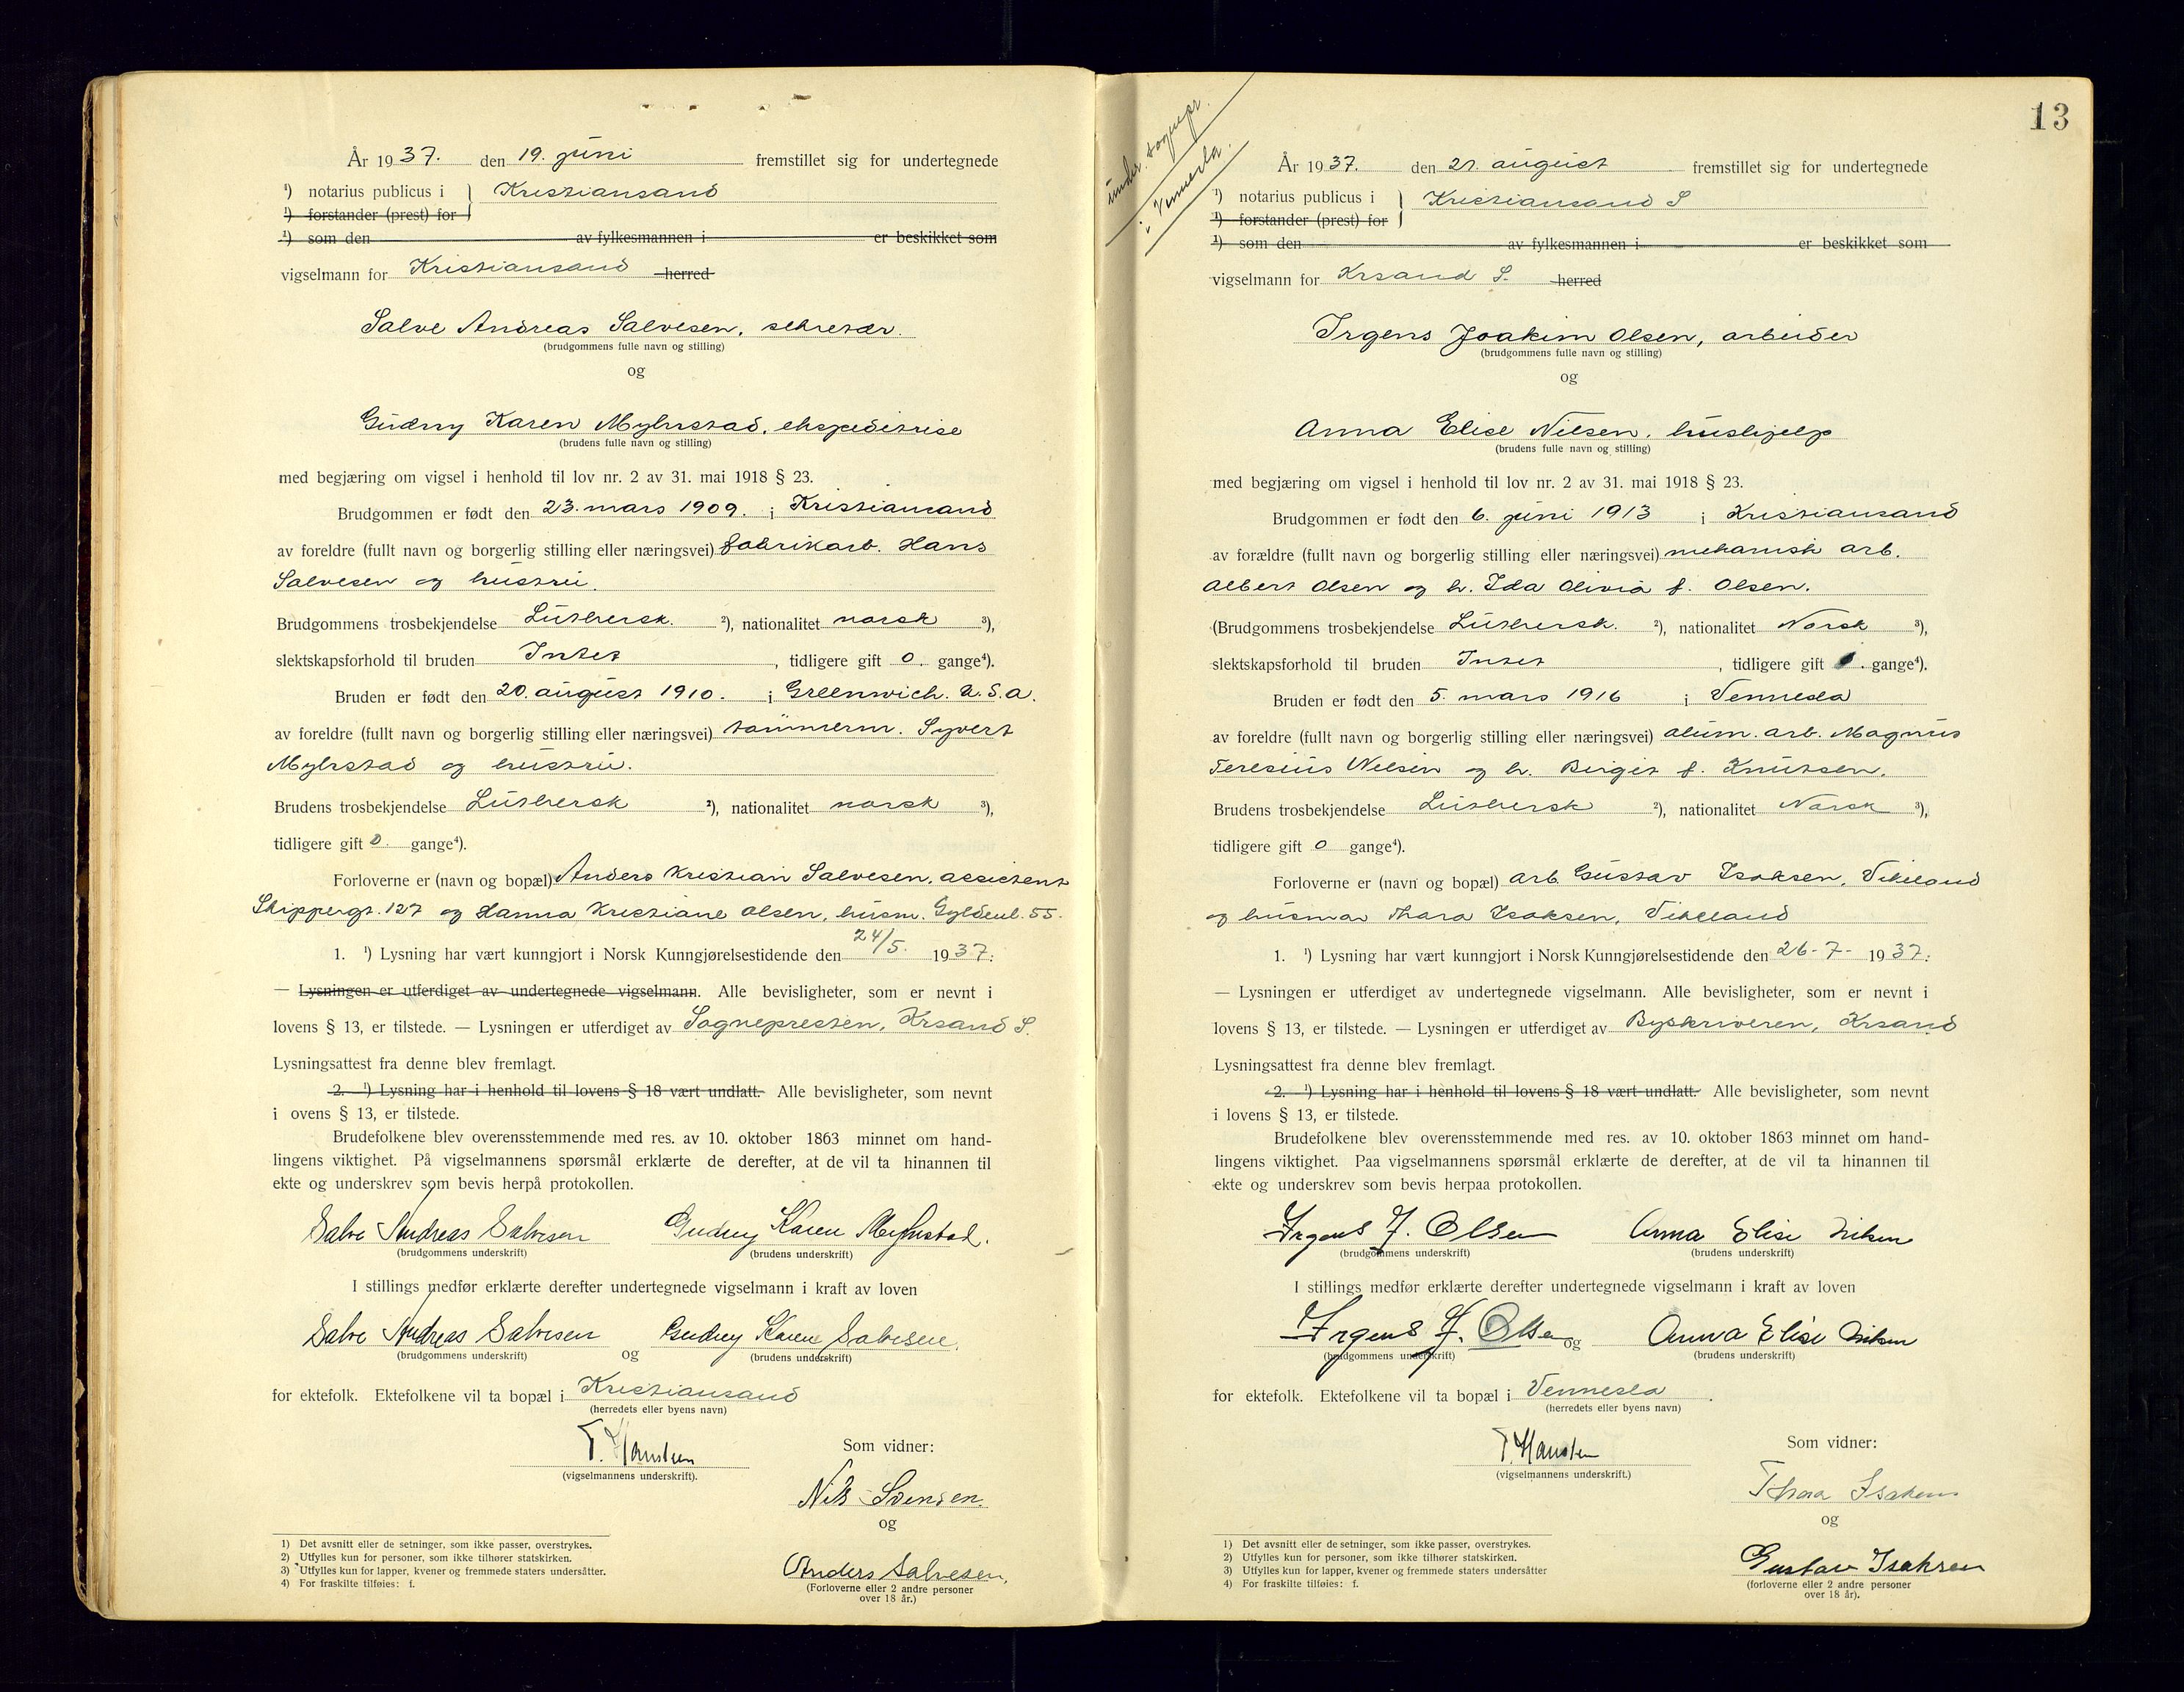 År 1937. den 19. juni fremstillet sig for undertegnede
¹) notarius publicus i } Kristiansand
¹) forstander (prest) for
¹) som den av fylkesmannen i er beskikket som
vigselmann for Kristiansand herred
Salve Andreas Salvesen, sekretær.
(brudgommens fulle navn og stilling)
og
Gudny Karen Myhrstad, ekspeditrise
(brudens fulle navn og stilling)
med begjæring om vigsel i henhold til lov nr. 2 av 31. mai 1918 § 23.
Brudgommen er født den 23. mars 1909. i Kristiansand
av foreldre (fullt navn og borgerlig stilling eller næringsvei) fabrikarb. Hans
Salvesen og hustru.
Brudgommens trosbekjendelse Luthersk. ²), nationalitet norsk ³),
slektskapsforhold til bruden Intet , tidligere gift 0. gange⁴).
Bruden er født den 20. august 1910. i Greenwich. U.S.A.
av foreldre (fullt navn og borgerlig stilling eller næringsvei) tømmerm. Syvert
Myhrstad og hustru.
Brudens trosbekjendelse Luthersk ²), nationalitet norsk ³),
tidligere gift 0. gange⁴).
Forloverne er (navn og bopæl) Anders Kristian Salvesen, assistent
Skippergt. 127 og Hanna Kristiane Olsen, husm. Gyldenl. 55.
1. ¹) Lysning har vært kunngjort i Norsk Kunngjørelsestidende den 24/5. 1937:
— Lysningen er utferdiget av undertegnede vigselmann. Alle bevisligheter, som er nevnt i
lovens § 13, er tilstede. — Lysningen er utferdiget av Sognepresten, Krsand S.
Lysningsattest fra denne blev fremlagt.
2. ¹) Lysning har i henhold til lovens § 18 vært undlatt. Alle bevisligheter, som nevnt
i ovens § 13, er tilstede.
Brudefolkene blev overensstemmende med res. av 10. oktober 1863 minnet om hand-
lingens viktighet. På vigselmannens spørsmål erklærte de derefter, at de vil ta hinannen til
ekte og underskrev som bevis herpå protokollen.
Salve Andreas Salvesen Gudny Karen Myhrstad.
(brudgommens underskrift) (brudens underskrift)
I stillings medfør erklærte derefter undertegnede vigselmann i kraft av loven
Salve Andreas Salvesen og Gudny Karen Salvesen.
(brudgommens underskrift) (brudens underskrift)
for ektefolk. Ektefolkene vil ta bopæl i Kristiansand
(herredets eller byens navn)
T. Hansten
(vigselmannens underskrift).
Som vidner:
Nils Svensen
og
Anders Salvesen,
(Forloverne eller 2 andre personer
over 18 år.)
1) Det avsnitt eller de setninger, som ikke passer, overstrykes.
2) Utfylles kun for personer, som ikke tilhører statskirken.
3) Utfylles kun for lapper, kvener og fremmede staters undersåtter.
4) For fraskilte tilføies: f.
13
under sognepr.
i Vennesla.
År 1937. den 21. august fremstillet sig for undertegnede
¹) notarius publicus i } Kristiansand S
¹) forstander (prest) for
¹) som den av fylkesmannen i er beskikket som
vigselmann for Krsand S. herred
Irgens Joakim Olsen, arbeider
(brudgommens fulle navn og stilling)
og
Anna Elise Nilsen, hushjelp
(brudens fulle navn og stilling)
med begjæring om vigsel i henhold til lov nr. 2 av 31. mai 1918 § 23.
Brudgommen er født den 6. juni 1913 i Kristiansand
av forældre (fullt navn og borgerlig stilling eller næringsvei) mekanisk arb.
Albert Olsen og h. Ida Olivia f. Olsen.
(Brudgommens trosbekjendelse Luthersk. ²), nationalitet Norsk ³),
slektskapsforhold til bruden Intet , tidligere gift 0. gange⁴).
Bruden er født den 5. mars 1916 i Vennesla
av foreldre (fullt navn og borgerlig stilling eller næringsvei) alum. arb. Magnus
Teresius Nilsen og h. Birgit f. Knutsen.
Brudens trosbekjendelse Luthersk ²), nationalitet Norsk ³),
tidligere gift 0 gange⁴).
Forloverne er (navn og bopæl) arb. Gustav Isaksen, Vikeland
og husmor Thora Isaksen, Vikeland
1. ¹) Lysning har vært kunngjort i Norsk Kunngjørelsestidende den 26-7- 1937:
— Lysningen er utferdiget av undertegnede vigselmann. Alle bevisligheter, som er nevnt i
lovens § 13, er tilstede. — Lysningen er utferdiget av Byskriveren, Krsand
Lysningsattest fra denne blev fremlagt.
2. ¹) Lysning har i henhold til lovens § 18 vært undlatt. Alle bevisligheter, som nevnt
i lovens § 13, er tilstede.
Brudefolkene blev overensstemmende med res. av 10. oktober 1863 minnet om hand-
lingens viktighet. Paa vigselmannens spørsmål erklærte de derefter, at de vil ta hinannen til
ekte og underskrev som bevis herpaa protokollen.
Irgens J. Olsen Anna Elise Nilsen
(brudgommens underskrift) (brudens underskrift)
I stillings medfør erklærte derefter undertegnede vigselmann i kraft av loven
Irgens J. Olsen og Anna Elise Nilsen
(brudgommens underskrift) (brudens underskrift)
for ektefolk. Ektefolkene vil ta bopæl i Vennesla .
(herredets eller byens navn)
T. Hansten
(vigselmannens underskrift.)
Som vidner:
Thora Isaksen
og
Gustav Isaksen
(forloverne eller 2 andre personer
over 18 år).
1) Det avsnitt eller de setninger, som ikke passer, overstrykes.
2) Utfylles kun for personer, som ikke tilhører statskirken.
3) Utfylles kun for lapper, kvener og fremmede staters undersåtter
4) For fraskilte tilføies: f.